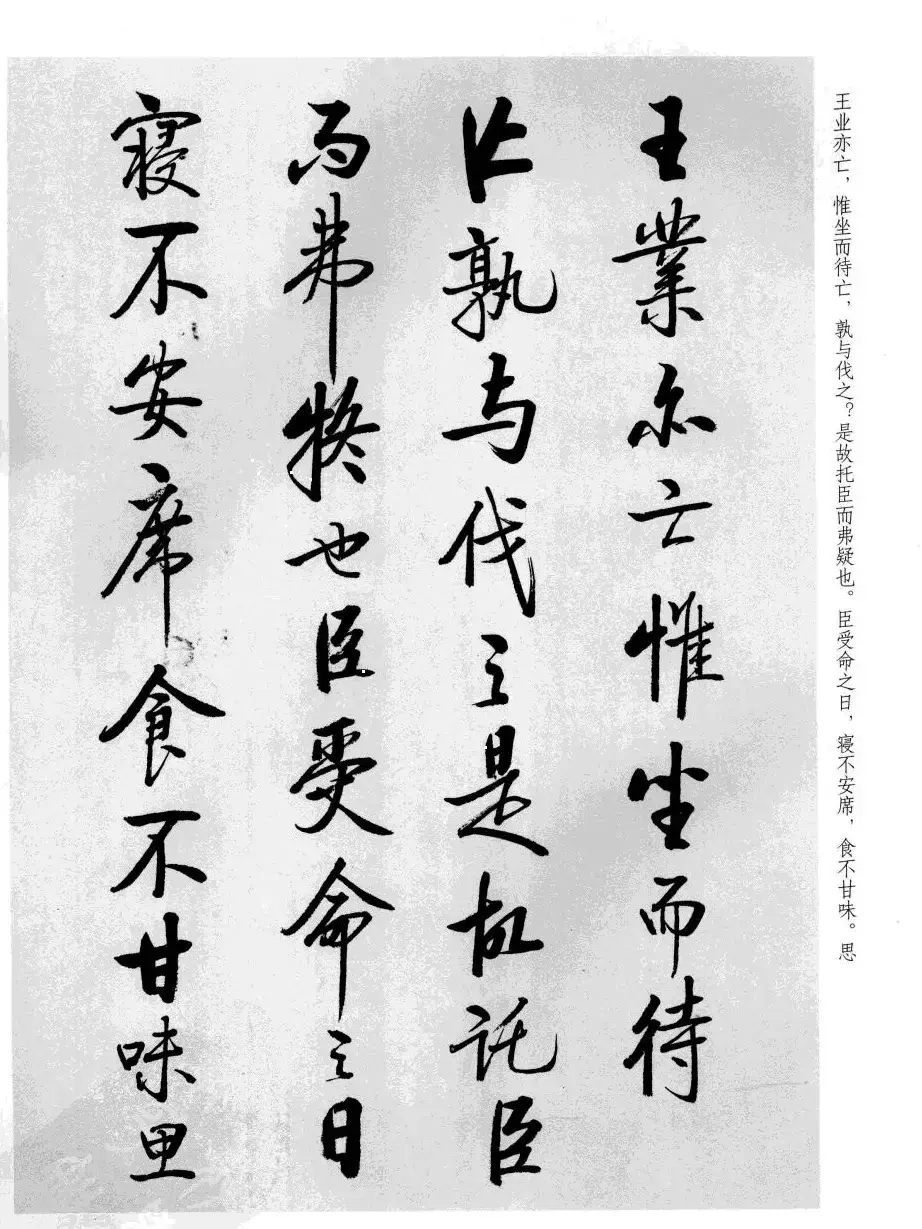 王业亦亡，惟坐而待亡，孰与伐之？是故托臣而弗疑也。臣受命之日，寝不安席，食不甘味。思
王業亦亡惟坐而待
亡孰与伐之是故託臣
而弗疑也臣受命之日
寝不安席食不甘味思